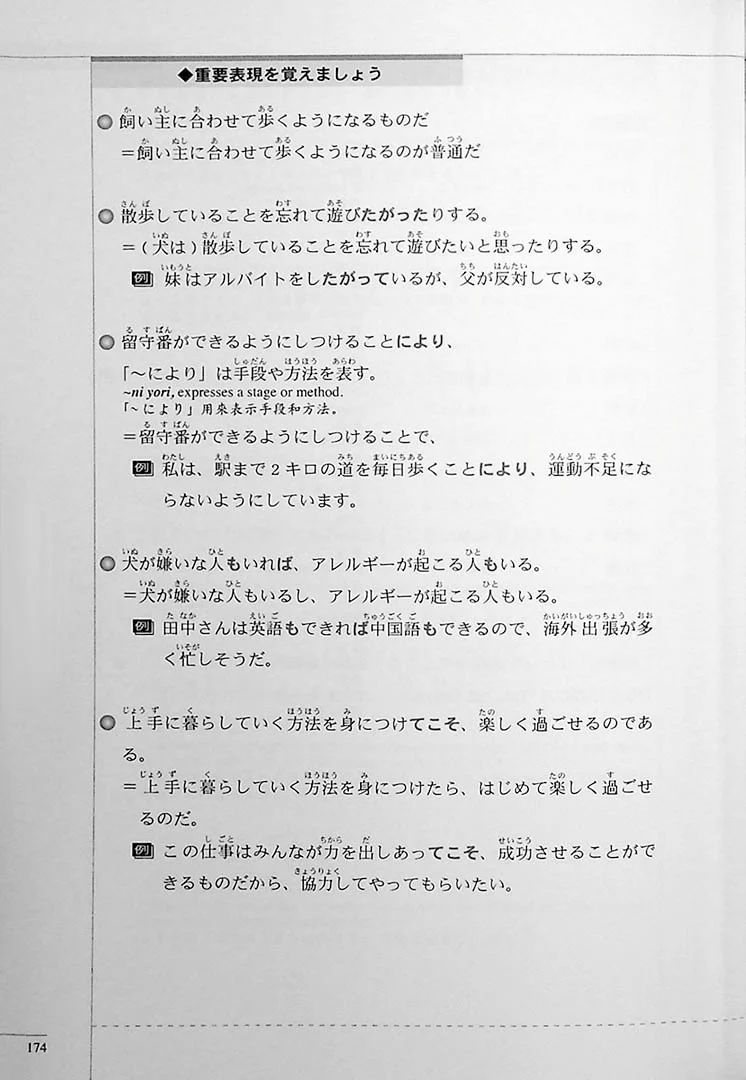 ◆重要表現を覚えましょう
飼い主に合わせて歩くようになるものだ
＝飼い主に合わせて歩くようになるのが普通だ
散歩していることを忘れて遊びたがったりする。
＝(犬は)散歩していることを忘れて遊びたいと思ったりする。
例 妹はアルバイトをしたがっているが、父が反対している。
留守番ができるようにしつけることにより、
「～により」は手段や方法を表す。
~ni yori, expresses a stage or method.
「~により」用來表示手段和方法。
＝留守番ができるようにしつけることで、
例 私は、駅まで2キロの道を毎日歩くことにより、運動不足にな
らないようにしています。
犬が嫌いな人もいれば、アレルギーが起こる人もいる。
＝犬が嫌いな人もいるし、アレルギーが起こる人もいる。
例 田中さんは英語もできれば中国語もできるので、海外出張が多
く忙しそうだ。
上手に暮らしていく方法を身につけてこそ、楽しく過ごせるのであ
る。
＝上手に暮らしていく方法を身につけたら、はじめて楽しく過ごせ
るのだ。
例 この仕事はみんなが力を出しあってこそ、成功させることがで
きるものだから、協力してやってもらいたい。
174